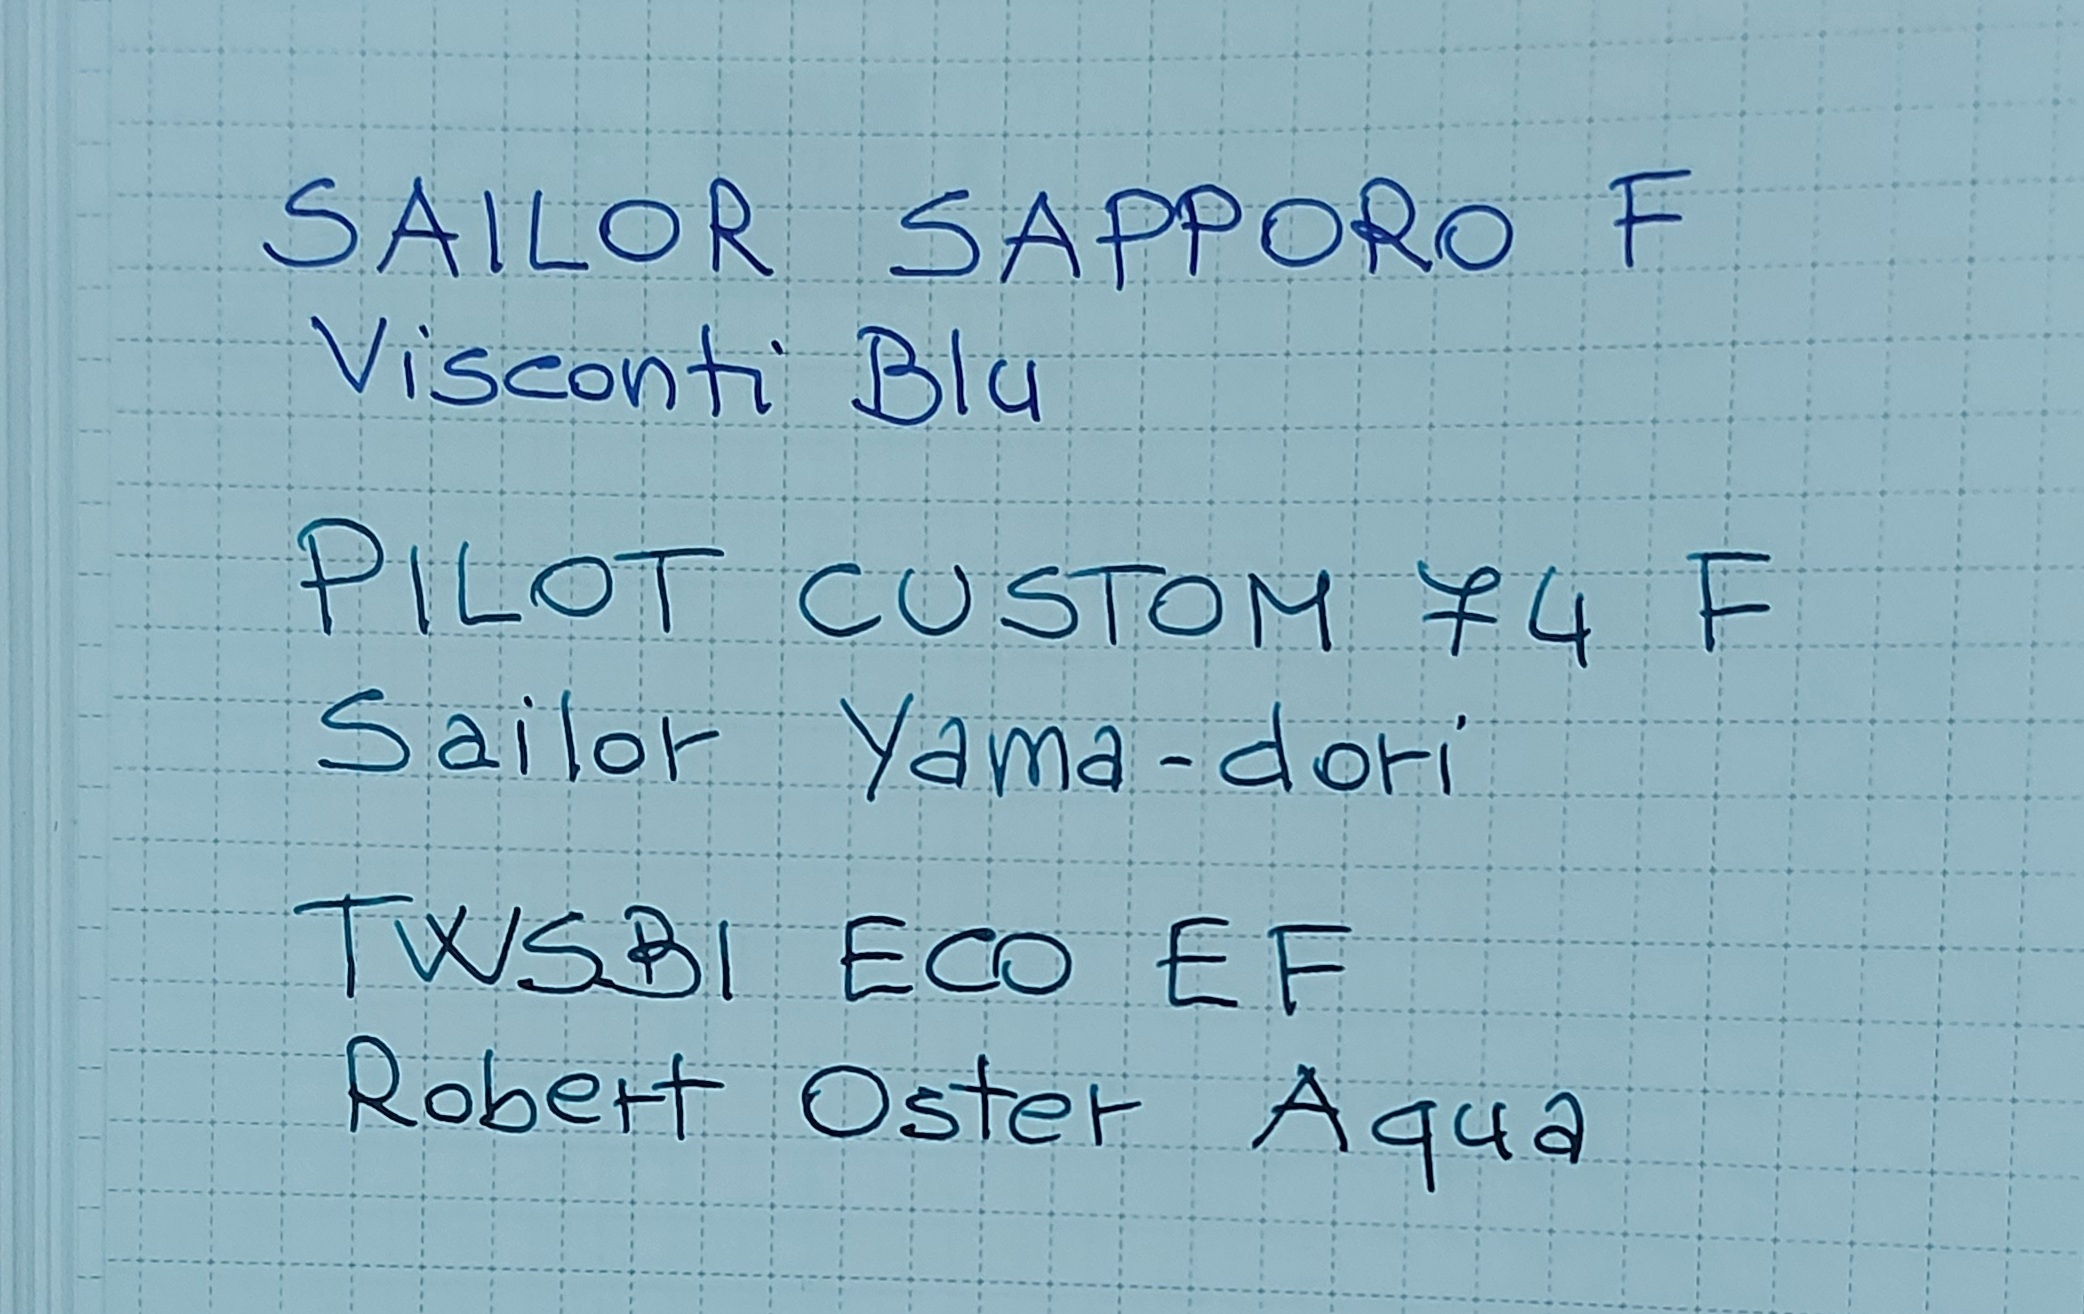 SAILOR SAPPORO F
Visconti Blu
PILOT CUSTOM 74 F
Sailor Yama-dori
TWSBI ECO EF
Robert Oster Aqua